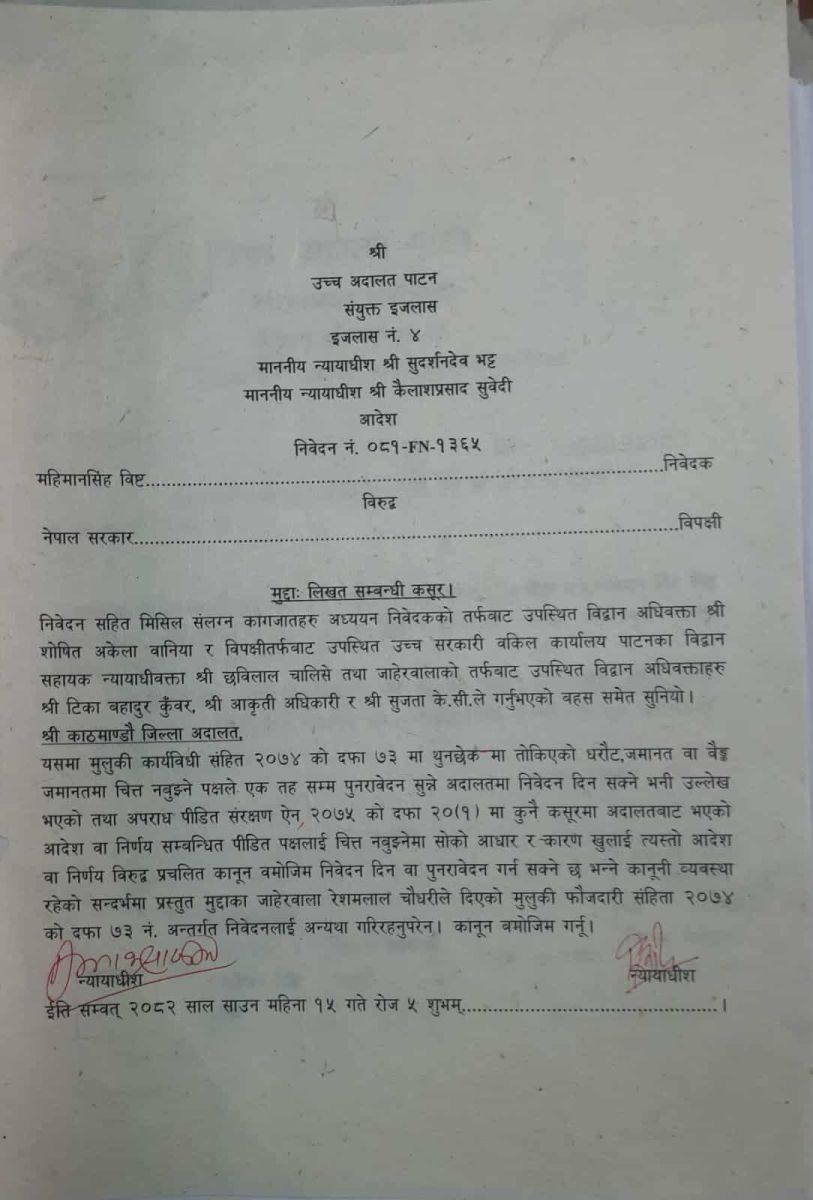 श्री
उच्च अदालत पाटन
संयुक्त इजलास
इजलास नं. ४
माननीय न्यायाधीश श्री सुदर्शनदेव भट्ट
माननीय न्यायाधीश श्री कैलाशप्रसाद सुवेदी
आदेश
निवेदन नं. ०८१-FN-१३६५
महिमानसिंह विष्ट....................................................................निवेदक
विरुद्ध
नेपाल सरकार....................................................................विपक्षी
मुद्दाः लिखत सम्बन्धी कसूर।
निवेदन सहित मिसिल संलग्न कागजातहरु अध्ययन निवेदकको तर्फवाट उपस्थित विद्वान अधिवक्ता श्री
शोषित अकेला वानिया र विपक्षीतर्फवाट उपस्थित उच्च सरकारी वकिल कार्यालय पाटनका विद्वान
सहायक न्यायाधीवक्ता श्री छविलाल चालिसे तथा जाहेरवालाको तर्फवाट उपस्थित विद्वान अधिवक्ताहरु
श्री टिका बहादुर कुँवर, श्री आकृती अधिकारी र श्री सुजता के.सी.ले गर्नुभएको वहस समेत सुनियो।
श्री काठमाण्डौ जिल्ला अदालत,
यसमा मुलुकी कार्यविधी संहित २०७४ को दफा ७३ मा थुनछेक मा तोकिएको धरौट,जमानत वा वैङ्क
जमानतमा चित्त नबुझ्ने पक्षले एक तह सम्म पुनरावेदन सुन्ने अदालतमा निवेदन दिन सक्ने भनी उल्लेख
भएको तथा अपराध पीडित संरक्षण ऐन, २०७५ को दफा २०(१) मा कुनै कसूरमा अदालतबाट भएको
आदेश वा निर्णय सम्बन्धित पीडित पक्षलाई चित्त नबुझेमा सोको आधार र कारण खुलाई त्यस्तो आदेश
वा निर्णय विरुद्ध प्रचलित कानून वमोजिम निवेदन दिन वा पुनरावेदन गर्न सक्ने छ भन्ने कानूनी व्यवस्था
रहेको सन्दर्भमा प्रस्तुत मुद्दाका जाहेरवाला रेशमलाल चौधरीले दिएको मुलुकी फौजदारी संहिता २०७४
को दफा ७३ नं. अन्तर्गत निवेदनलाई अन्यथा गरिरहनुपरेन। कानून वमोजिम गर्नू।
न्यायाधीश न्यायाधीश
ईति सम्वत् २०८२ साल साउन महिना १५ गते रोज ५ शुभम्................................................।